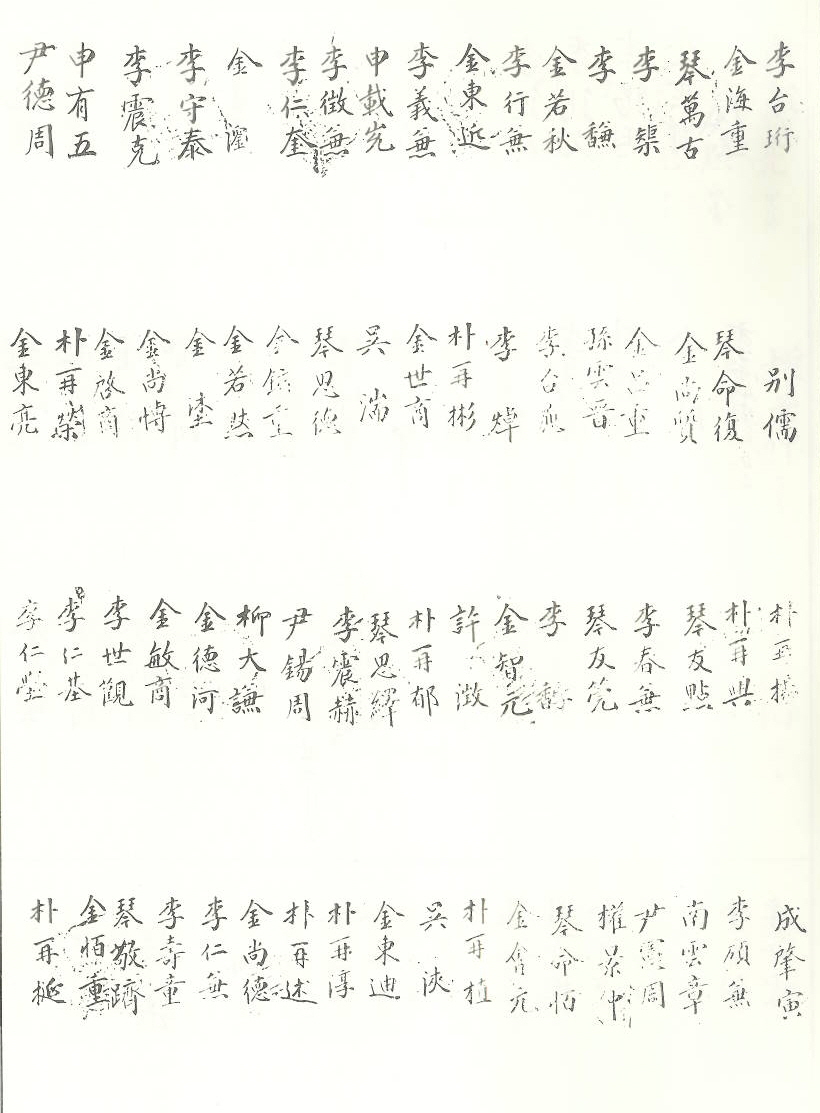 李台珩
金海重
琴萬古
李榘
李馦
金若秋
李行無
金東近
李義無
申載岌
李徵無
李仁奎
金瀏
李守泰
李震克
申有五
尹德周
別儒
琴命復
金尚賢
金呂重
孫雲晋
李台
李焯
朴再彬
金世商
吴湍
琴思德
金鎮重
金若
金
金尚愽
金啓商
朴再榮
金東亮
朴再
朴再興
琴友點
李春無
琴友筦
李
金智元
許澂
朴再郁
琴思繹
李震赫
尹錫周
柳大謙
金德河
金敏商
李世觀
李仁基
李仁瑩
成肇寅
李碩無
南雲章
尹憲周
權景
琴命恒
金會元
朴再植
吴浹
金東迪
朴再淳
朴再述
金尚德
李仁無
李壽童
琴敬躋
金恒重
朴再